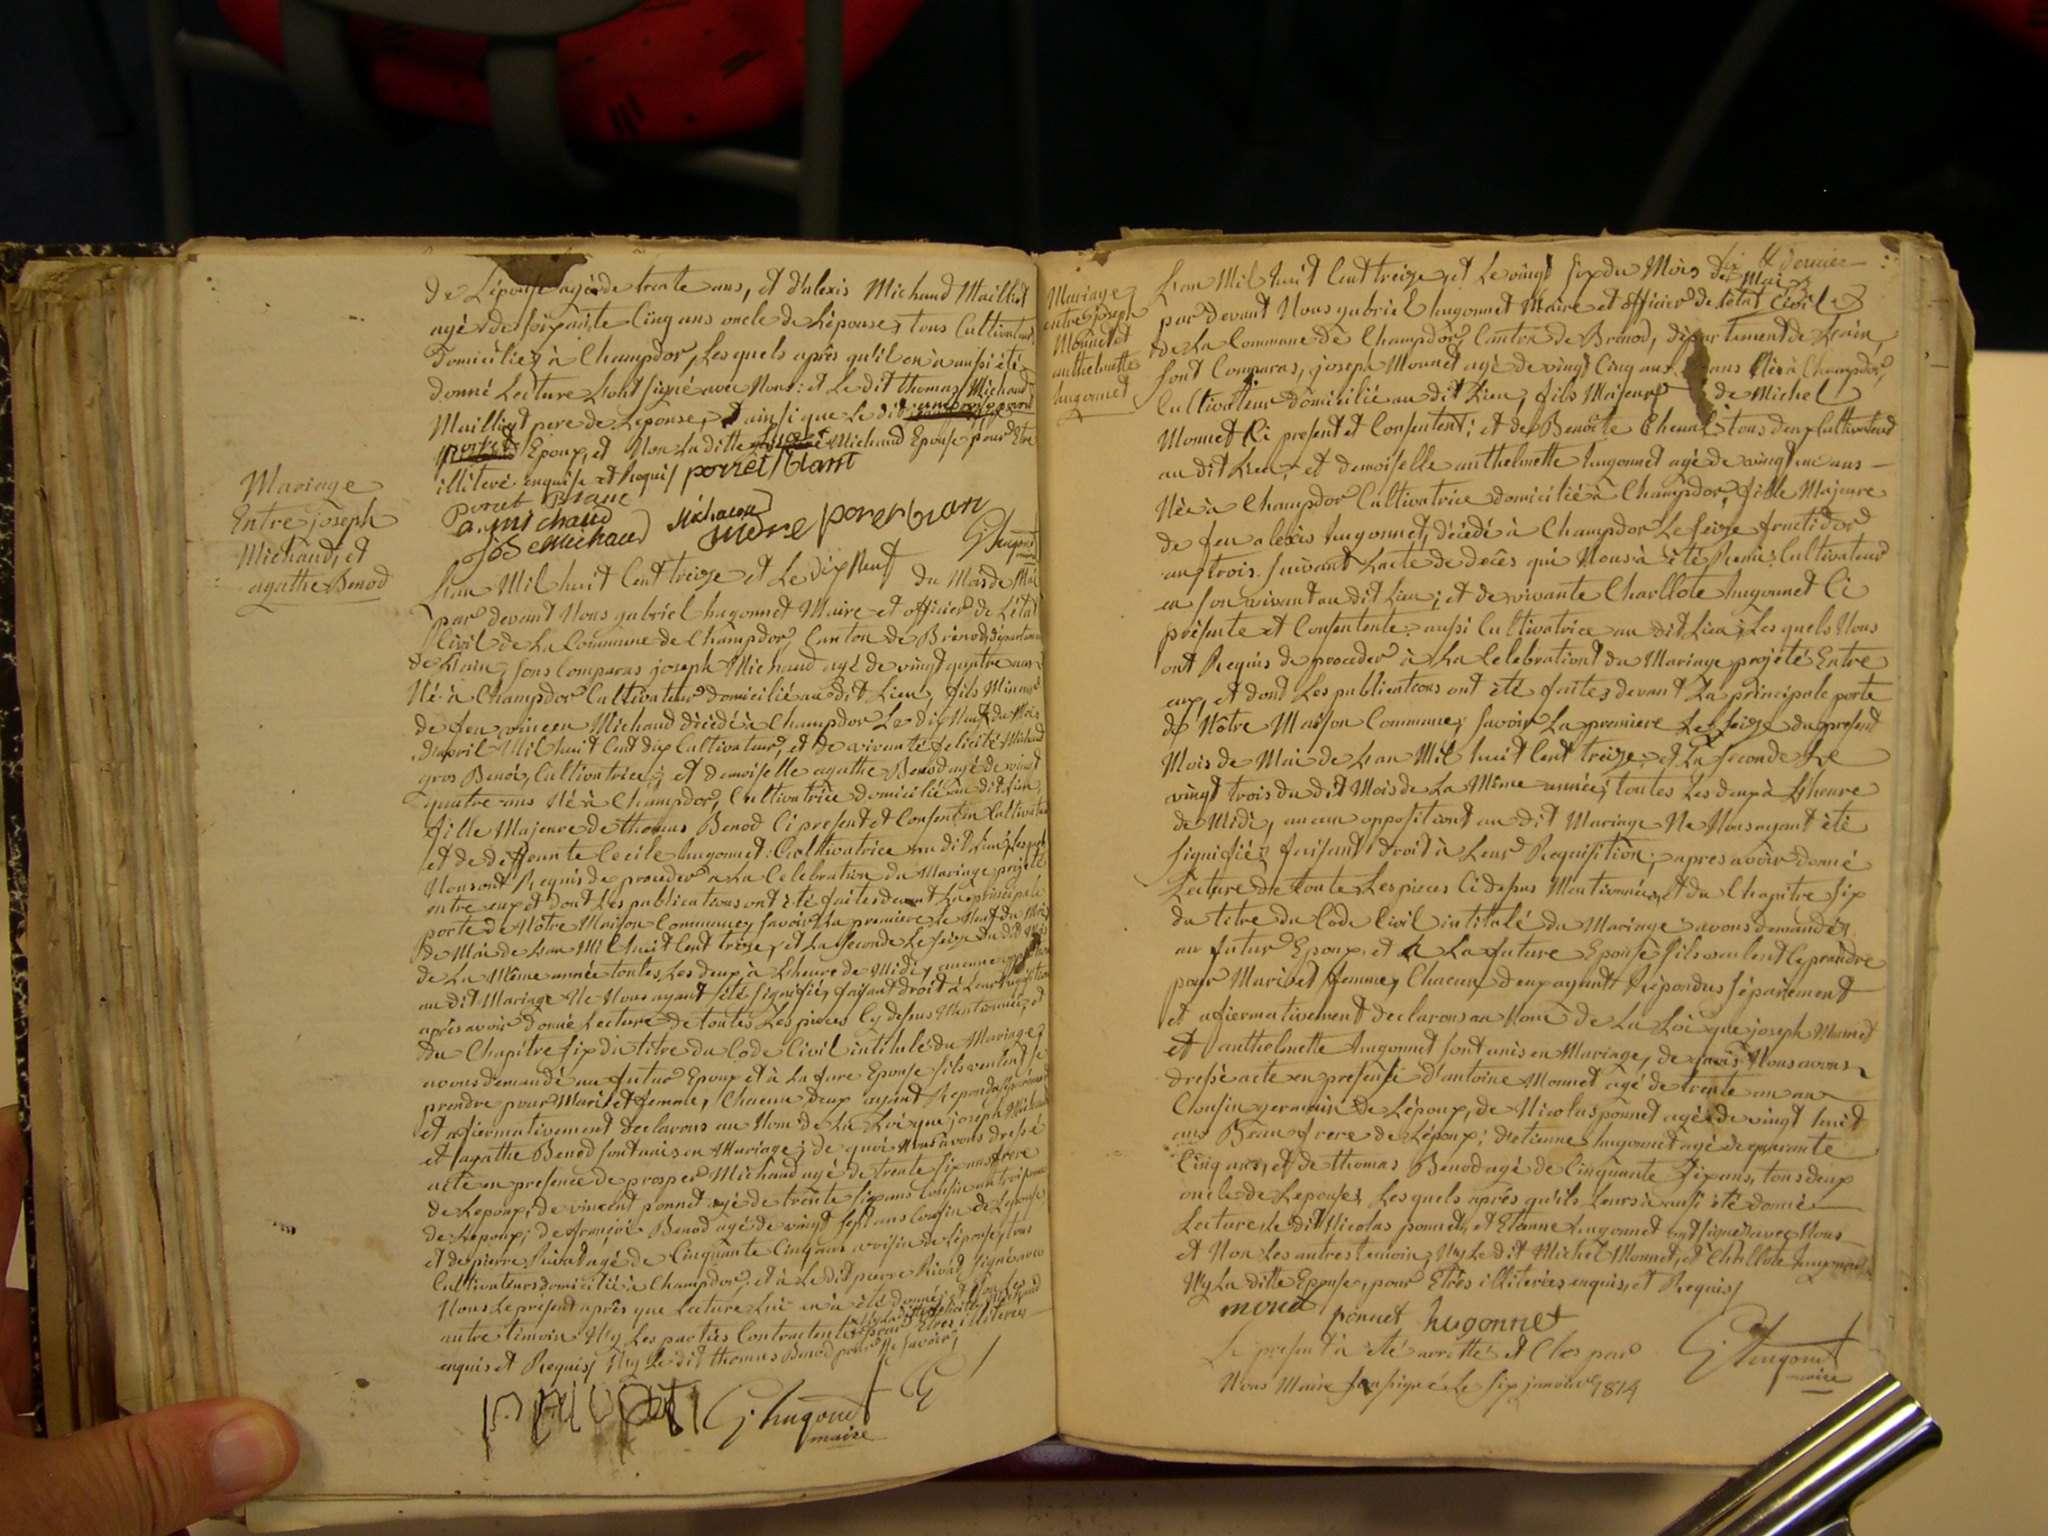 de L'épouse agé de trente ans, et d'alexis Michaud Maillet
agé de soixante Cinq ans oncle de L'épouse, tous Cultivateurs
Domiciliez à Champdor, Les quels après qu'il en à aussi été
donné Lecture L'ont signé avec Nous: et Le dit thomas Michaud
Mailliet pere de Leponse, ainsi que Le dit
Epoux, et Non La ditte Michaud Epouse pour Etre
illiteré enquise et Requis porret blanc
poret Blanc
a. michaud Michaud
Jos michaud pierre poret blan
G. hugonet
maire
Mariage
Entre joseph
Michaud, et
agathe Benod
L'an Mil huit Cent treize et Le dix Neuf du Mois de Mai
par devant Nous gabriel hugonnet Maire et officier de L'état
Civil de La Commune de Champdor, Canton de Brénod, départemen
de L'ain, sons Comparus joseph Michaud agé de vingt quatre ans
Né à Champdor Cultivateur domicilié au dit Lieu, fils Mineur
de feu vincen Michaud décédé à Champdor Le dix Neuf du Mois
d'april Mil huit Cent dix Cultivateur, et de vivante félicité Michaud
gros Benoi, Cultivatrice; et demoiselle agathe Benod agé de vingt
quatre ans Né à Champdor, Cultivatrice domicilié au dit Lieu,
fille Majeure de thomas Benod Ci present et Consentan Cultivateur
et de deffeunte Cecile hugonnet: Cultivatrice au dit Lieu, Les quels
Nous ont Requis de proceder à La Celebration du Mariage projeté
entre eux et dont Les publications ont été faites devant La principale
porte de Nôtre Maison Commune, savoir La premiere Le Neuf du Mois
de Mai de L'an Mil huit Cent treize, et La seconde Le seize du dit Mois
de La Même année toutes Les deux à L'heure de Midi, aucune opposition
au dit Mariage Ne Nous ayant été signifié, faisant droit à Leur Requisition
après avoir donné Lecture de toutes Les pieces Cy dessus Mentionnée, et
du Chapitre six du titre du Code Civil intitulé du Mariage,
avons demandé au futur Epoux et à La fure Epouse s'ils veulent se
prendre pour Mari et femme, Chacun deux ayant Repondu séparément
et affiermativement declarons au Nom de La Loi que joseph Michaud
et agathe Benod sont unis en Mariage; de quoi Nous avons dressé
acte en presence de prosper Michaud agé de trente six ans frere
de Lepoux, de vincent ponnet agé de trente six ans Cousin au troisieme
de Lepoux; de françois Benod agé de vingt sept ans Cousin de L'épouse,
et de pierre Rivat agé de Cinquante Cinq ans voisin de L'épouse, tous
Cultivateurs domicilié à Champdor, et à Le dit pierre Rivat signé avec
Nous Le present après que Lecture Lui en à été donné; et Non Les
autre timoin Ny Les parties Contractentes Ny La ditte felicité Michaud pour Etres illiterés
enquis et Requis, Ny Le dit thomas Benod pour Ne savoir,
p. RIVAT G. hugonet
maire
Le dernier
Mariage
entre joseph
Monnet et
anthelmette
hugonnet
L'an Mil huit Cent treize, et Le vingt six du Mois de Mai
par devant Nous gabriel hugonnet Maire et officier de L'état Civil
de La Commune de Champdor, Canton de Brénod, département de L'ain,
sont Comparus, joseph Monnet agé de vingt Cinq ans Né à Champdor,
Cultivateur domicilié au dit Lieu, fils Majeur de Michel
Monnet Ci present et Consentent; et de Benoîte Chenal tous deux Cultivateurs
au dit Lieu, et demoiselle anthelmette hugonnet agé de vingt un ans
Née à Champdor Cultivatrice domicilié à Champdor, fille Majeure
de feu alexis hugonnet, décédé à Champdor Le seize fructidor
an trois suivant L'acte de décès qui Nous à été Remi: Cultivateur
en son vivant au dit Lieu; et de vivante Charllote hugonnet Ci
présente et Consentente aussi Cultivatrice au dit Lieu; Les quels Nous
ont Requis de proceder à La Celebration du Mariage projeté Entre
eux, et dont Les publications ont été faites devant La principale porte
de Nôtre Maison Commune; savoir La premiere Le seize du present
Mois de Mai de L'an Mil huit Cent treize, et La seconde Le
vingt trois du dit Mois de La Même année; toutes Les deux à L'heure
de Midi, aucun opposition au dit Mariage Ne Nous ayant été
signifié, faisant droit à Leur Requisition; apres avoir donné
Lecture de toute Les pieces Ci dessus Mentionnées, et du Chapitre six
du titre du Code Civil intitulé du Mariage avons demandés
au futur Epoux et à La future Epouse s'ils veulent se prendre
pour Mari et femme, Chacun d'eux ayant Répondus séparement
et afiermativement declarons au Nom de La Loi que joseph Monnet
et anthelmette hugonnet sont unis en Mariage, de quoi Nous avons
dressé acte en presense d'antoine Monnet agé de trente un an
Cousin germain de L'époux, de Nicolas ponnet agé de vingt huit
ans Beau frere de L'époux; d'etienne hugonnet agé de quarante
Cinq ans, et de thomas Benod agé de Cinquante six ans, tous deux
oncle de Lepouse, Les quels après qu'ils Leurs à aussi été donné
Lecture, Le dit Nicolas ponnet, et Etienne hugonnet ont signé avec Nous
et Non Les autres temoin, Ny Le dit Michel Monnet, et Charllote hugonnet
Ny La ditte Epouse, pour Etrês illiterées enquis, et Requis,
monet ponnet hugonnet
Le present à été arretté et Clos par
Nous Maire sousigné Le six janvier 1814
G. hugonet
maire